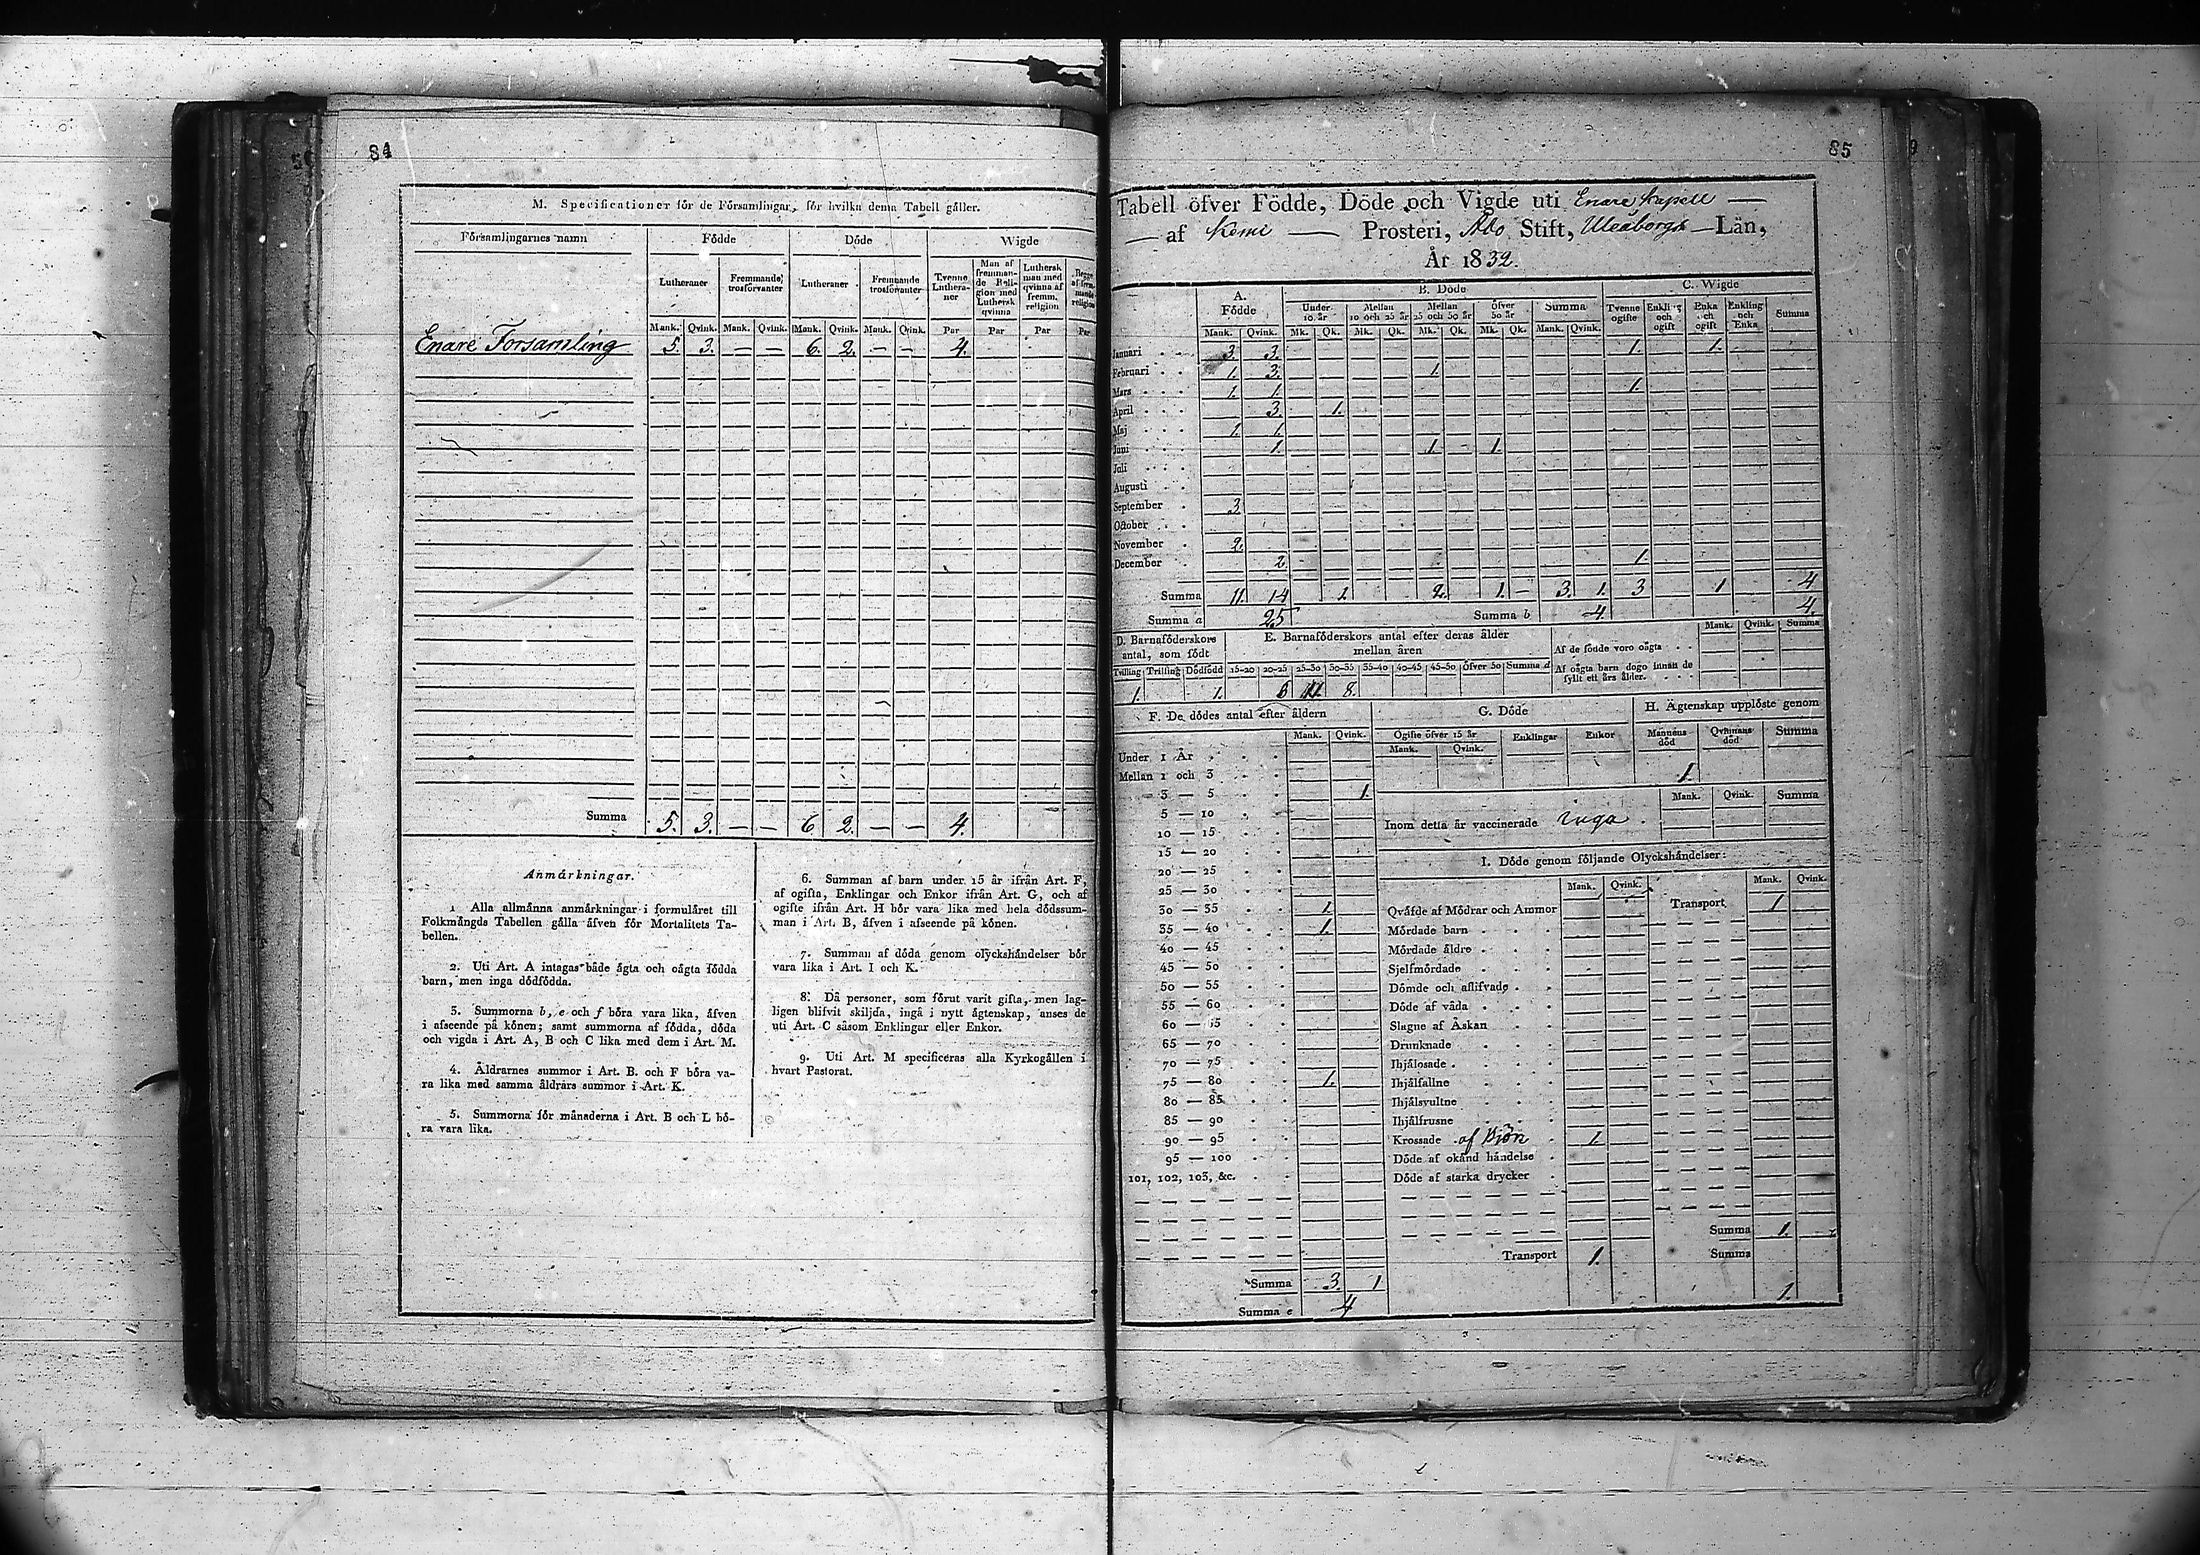 84
M. Specificationer för de Församlingar, för hvilka denna Tabell gäller.
Församlingarnes namn Födde Döde Wigde
Lutheraner Fremmande trosförvanter Lutheraner Fremmande trosförvanter Tvenne Lutheraner Man af fremmande Religion med Luthersk qvinna Luthersk man med qvinna af fremm. religion Begge af fremmande religion
Mank. Qvink. Mank. Qvink. Mank. Qvink. Mank. Qvink. Par Par Par Par
Enare Forsamling 5. 3. — — 6. 2. — — 4.
Summa 5. 3. — — 6 2. — — 4.
Anmärkningar.
1 Alla allmänna anmärkningar i formuläret till
Folkmängds Tabellen gälla äfven för Mortalitets Ta-
bellen.
2. Uti Art. A intagas både ägta och oägta födda
barn, men inga dödfödda.
3. Summorna b, e och f böra vara lika, äfven
i afseende på könen; samt summorna af födda, döda
och vigda i Art. A, B och C lika med dem i Art. M.
4. Åldrarnes summor i Art. B. och F böra va-
ra lika med samma åldrars summor i Art. K.
5. Summorna för månaderna i Art. B och L bö-
ra vara lika.
6. Summan af barn under 15 år ifrån Art. F,
af ogifta, Enklingar och Enkor ifrån Art. G, och af
ogifte ifrån Art. H bör vara lika med hela dödssum-
man i Art. B, äfven i afseende på könen.
7. Summan af döda genom olyckshändelser bör
vara lika i Art. I och K.
8. Då personer, som förut varit gifta, men lag-
ligen blifvit skiljda, ingå i nytt ägtenskap, anses de
uti Art. C såsom Enklingar eller Enkor.
9. Uti Art. M specificeras alla Kyrkogällen i
hvart Pastorat.
85
Tabell öfver Födde, Döde och Vigde uti Enare Kapell —
— af Kemi — Prosteri, Åbo Stift, Uleåborgs — Län,
År 1832.
A. Födde B. Döde C. Wigde
Under 10 år Mellan 10 och 25 år Mellan 25 och 50 år öfver 50 år Summa Tvenne ogifte Enkling och ogift Enka och ogift Enkling och Enka Summa
Mank. Qvink. Mk. Qk. Mk. Qk. Mk. Qk. Mk. Qk. Mank. Qvink.
Januari 3. 3. 1. 1.
Februari 1. 3. 1.
Mars 1. 1. 1.
April 3. 1.
Maj 1. 1.
Juni 1. 1. - 1.
Juli
Augusti
September 3.
October
November 2.
December 2. 1.
Summa 11. 14 1. 2. 1. - 3. 1. 3 1 4
Summa a 25 Summa b 4 4.
D. Barnaföderskors antal, som födt
E. Barnaföderskors antal efter deras ålder mellan åren
Mank. Qvink. Summa
Af de födde voro oägta
Af oägta barn dogo innan de fyllt ett års ålder.
Tvilling Trilling Dödfödd 15-20 20-25 25-30 30-35 35-40 40-45 45-50 Öfver 50 Summa d
1. 1. 6 11. 8.
F. De dödes antal efter åldern G. Döde H. Ägtenskap upplöste genom
Mank. Qvink. Ogifte öfver 15 år Enklingar Enkor Mannens död Qvinnans död Summa
Mank. Qvink.
1.
Mank. Qvink. Summa
Inom detta år vaccinerade inga
Under 1 År
Mellan 1 och 3
3 — 5 1.
5 — 10
10 — 15
15 — 20
20 — 25
25 — 30
30 — 35 1.
35 — 40 1.
40 — 45
45 — 50
50 — 55
55 — 60
60 — 65
65 — 70
70 — 75
75 — 80 1.
80 — 85
85 — 90
90 — 95
95 — 100
101, 102, 103, &c.
Summa 3. 1
Summa e 4
I. Döde genom följande Olyckshändelser:
Mank. Qvink. Mank. Qvink.
Qväfde af Mödrar och Ammor Transport 1
Mördade barn
Mördade äldre
Sjelfmördade
Dömde och aflifvade
Döde af våda
Slagne af Åskan
Drunknade
Ihjälosade
Ihjälfallne
Ihjälsvultne
Ihjälfrusne
Krossade af Biörn 1.
Döde af okänd händelse
Döde af starka drycker
Summa 1.
Transport 1. Summa
1.